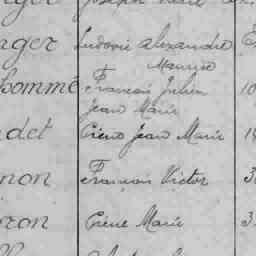 nger Ludovic Alexandre E
Maurice
homme François Julien 10
Jean Marie
det Pierre Jean Marie 14
non François Victor 3
ron Pierre Marie 3